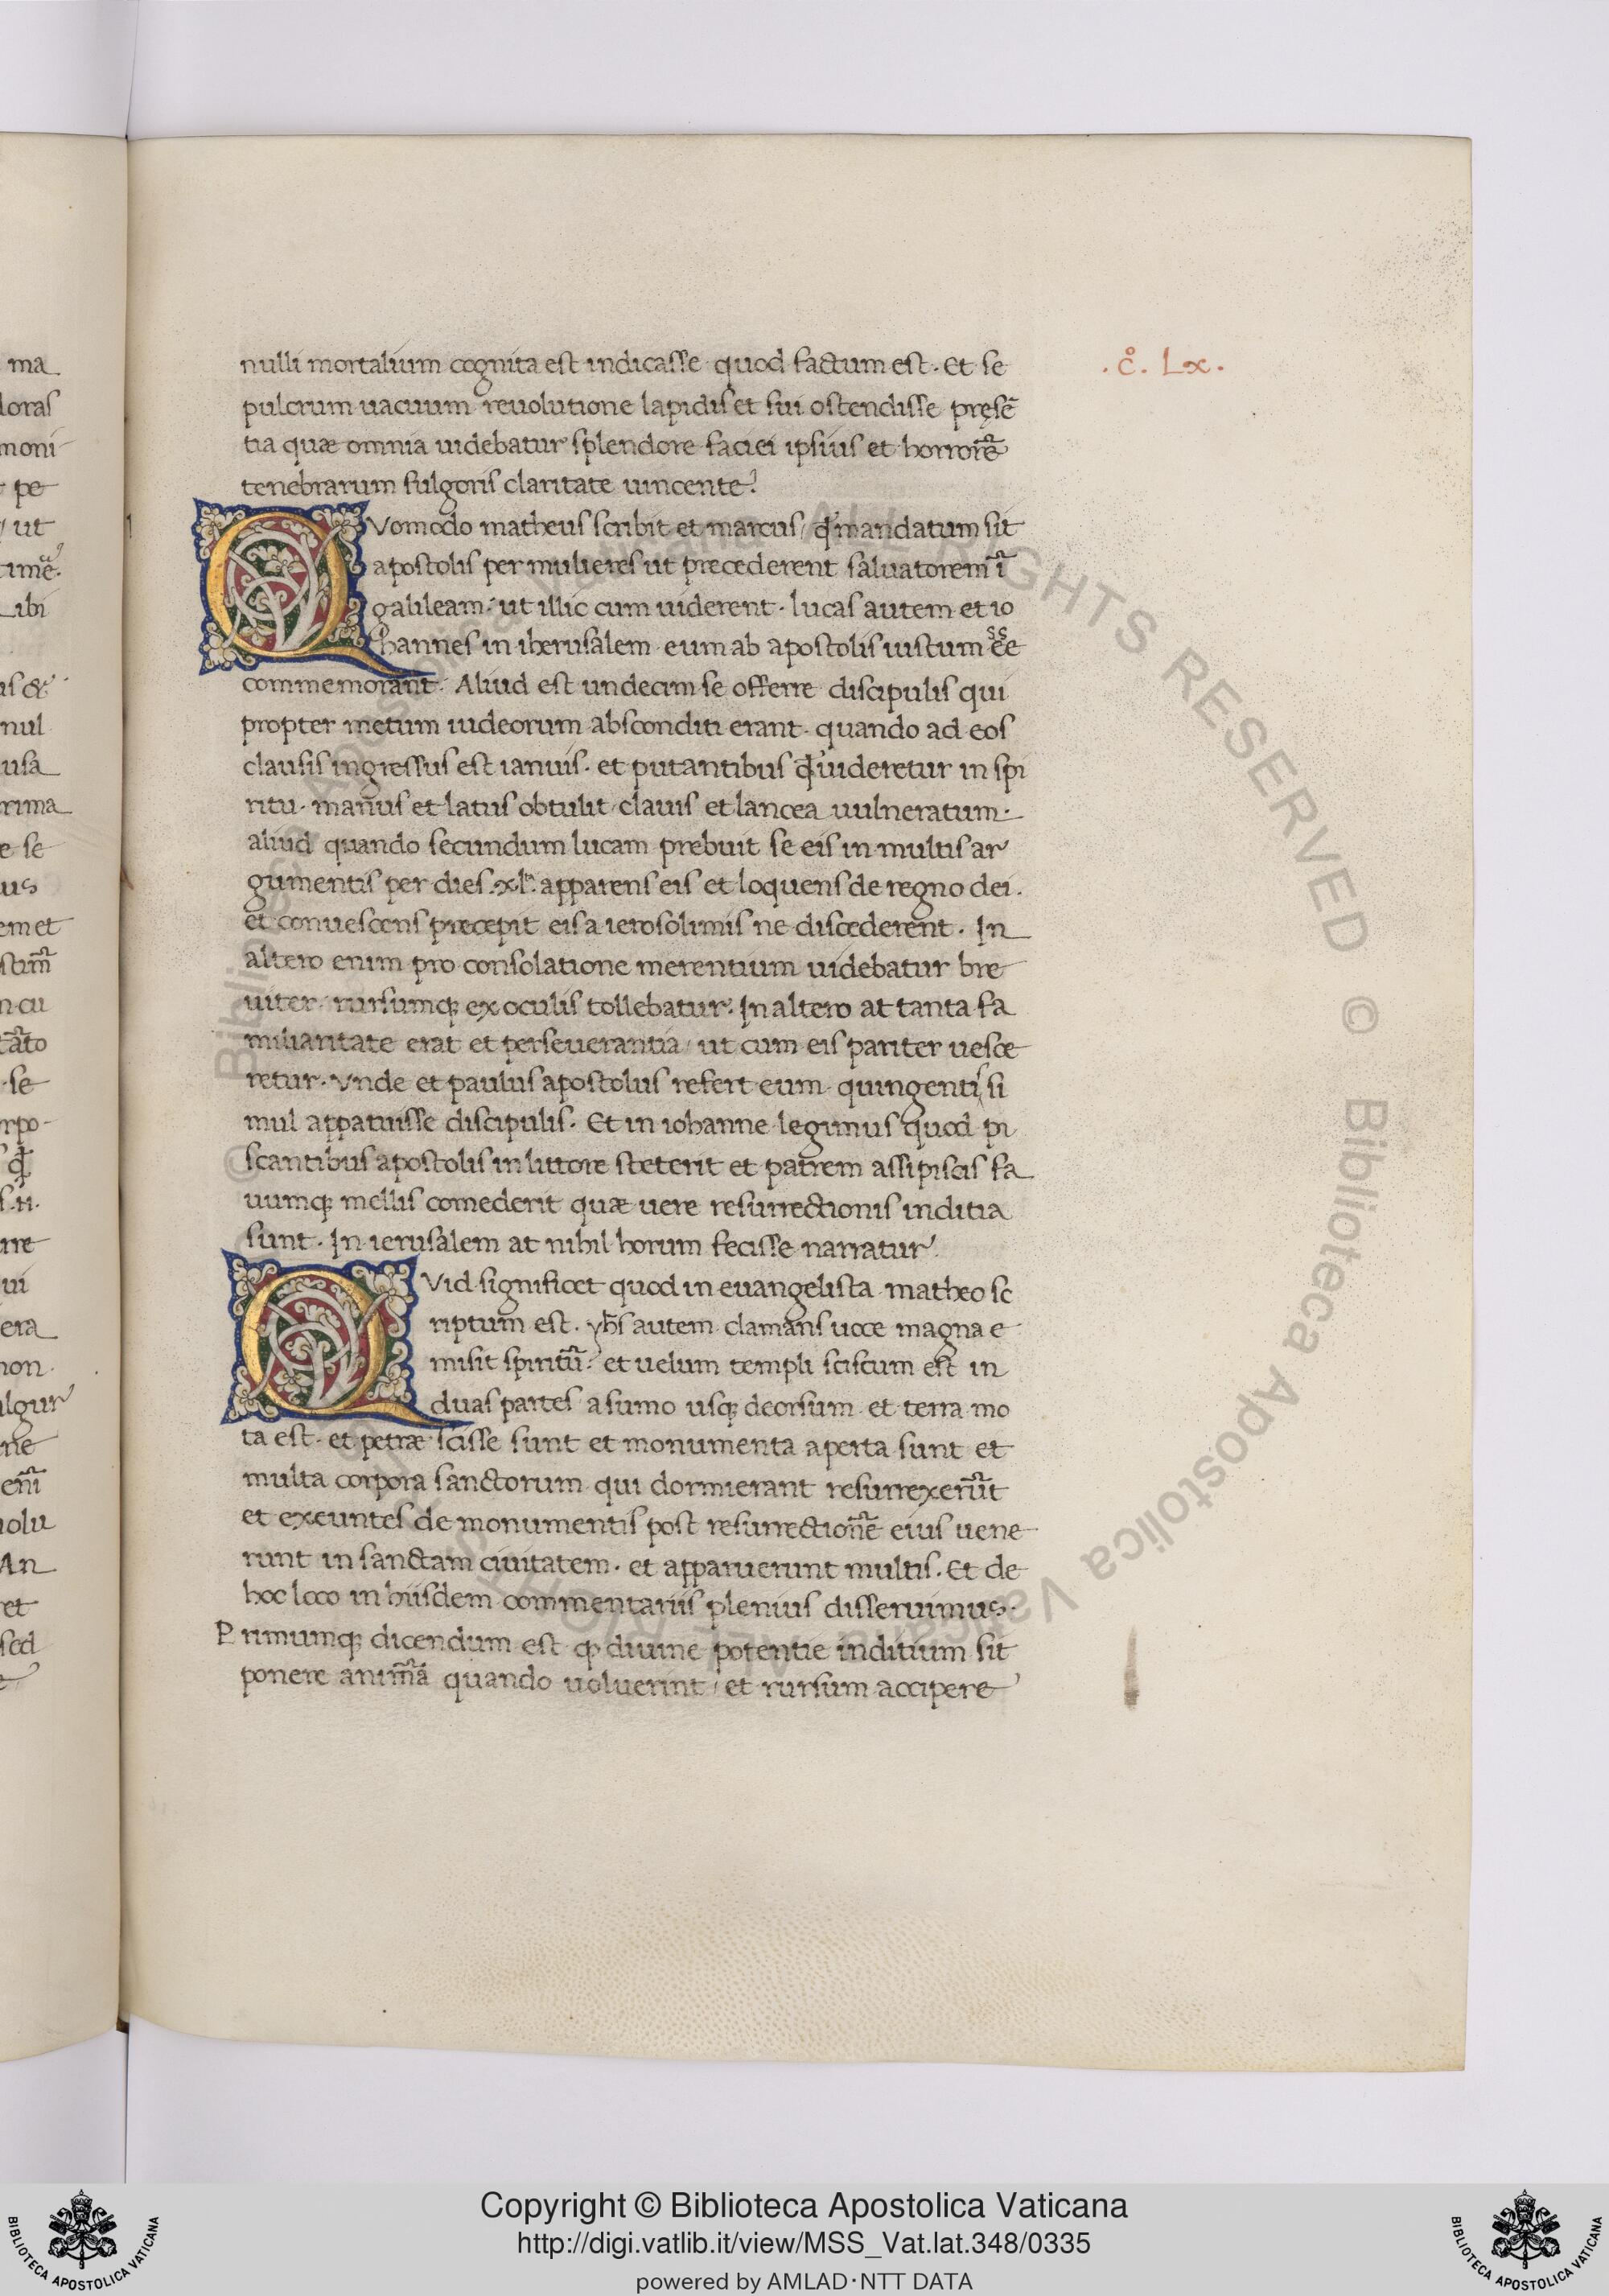 ma
loras
moni
pe
ut
timē
Libi
nul
usa
rima
e se
us
em et
n cu
tāto
se
rpo
rre
ui
era
non
ulgur
ne
uolu
An
et
sed
nulli mortalium cognita est indicasse quod factum est. Et se
pulcrum uacuum reuolutione lapidis et sui ostendisse pręsē
tia quæ omnia uidebatur splendore faciei ipsius et horrorē
tenebrarum fulgoris claritate uincente.
QVomodo matheus scribit et marcus / qđ mandatum sit
apostolis per mulieres ut precederent saluatorem ī
galileam. ut illic cum uiderent. lucas autem et io
hannes in iherusalem eum ab apostolis uistum eē
commemorant. Aliud est undecim se offerre discipulis qui
propter metum iudeorum absconditi erant. quando ad eos
clausis ingressus est ianuis. et putantibus qđ uideretur in spi
ritu. manus et latus obtulit / clauis et lancea uulneratum.
aliud quando secundum lucam prebuit se eis in multis ar
gumentis per dies .xl. apparens eis et loquens de regno dei.
et conuescens precepit eis a ierosolimis ne discederent. In
altero enim pro consolatione merentium uidebatur bre
uiter / rursumq; ex oculis tollebatur. In altero at tanta fa
miliaritate erat et perseuerantia / ut cum eis pariter uesce
retur. Vnde et paulus apostolus refert eum quingentis si
mul apparuisse discipulis. Et in iohanne legimus quod pi
scantibus apostolis in littore steterit et partem assi piscis fa
uumq; mellis comederit quæ uere resurrectionis inditia
sunt. In ierusalem at nihil horum fecisse narratur.
QVid significet quod in euangelista matheo sc
riptum est. yhs autem clamans uoce magna e
misit spiritū. et uelum templi sciscum est in
duas partes a sumo usq; deorsum et terra mo
ta est. et petræ scisse sunt et monumenta aperta sunt et
multa corpora sanctorum qui dormierant resurrexerūt
et exeuntes de monumentis post resurrectionē eius uene
runt in sanctam ciuitatem. et apparuerunt multis. Et de
hoc loco in hiisdem commentariis plenius disseruimus.
Primumq; dicendum est ꝙ diuine potentie inditium sit
ponere animā quando uoluerint / et rursum accipere
.c°. Lx.
© Biblioteca Apostolica Vaticana ALL RIGHTS RESERVED © Biblioteca Apostolica Vaticana
Copyright © Biblioteca Apostolica Vaticana
http://digi.vatlib.it/view/MSS_Vat.lat.348/0335
powered by AMLAD·NTT DATA
BIBLIOTECA APOSTOLICA VATICANA
BIBLIOTECA APOSTOLICA VATICANA